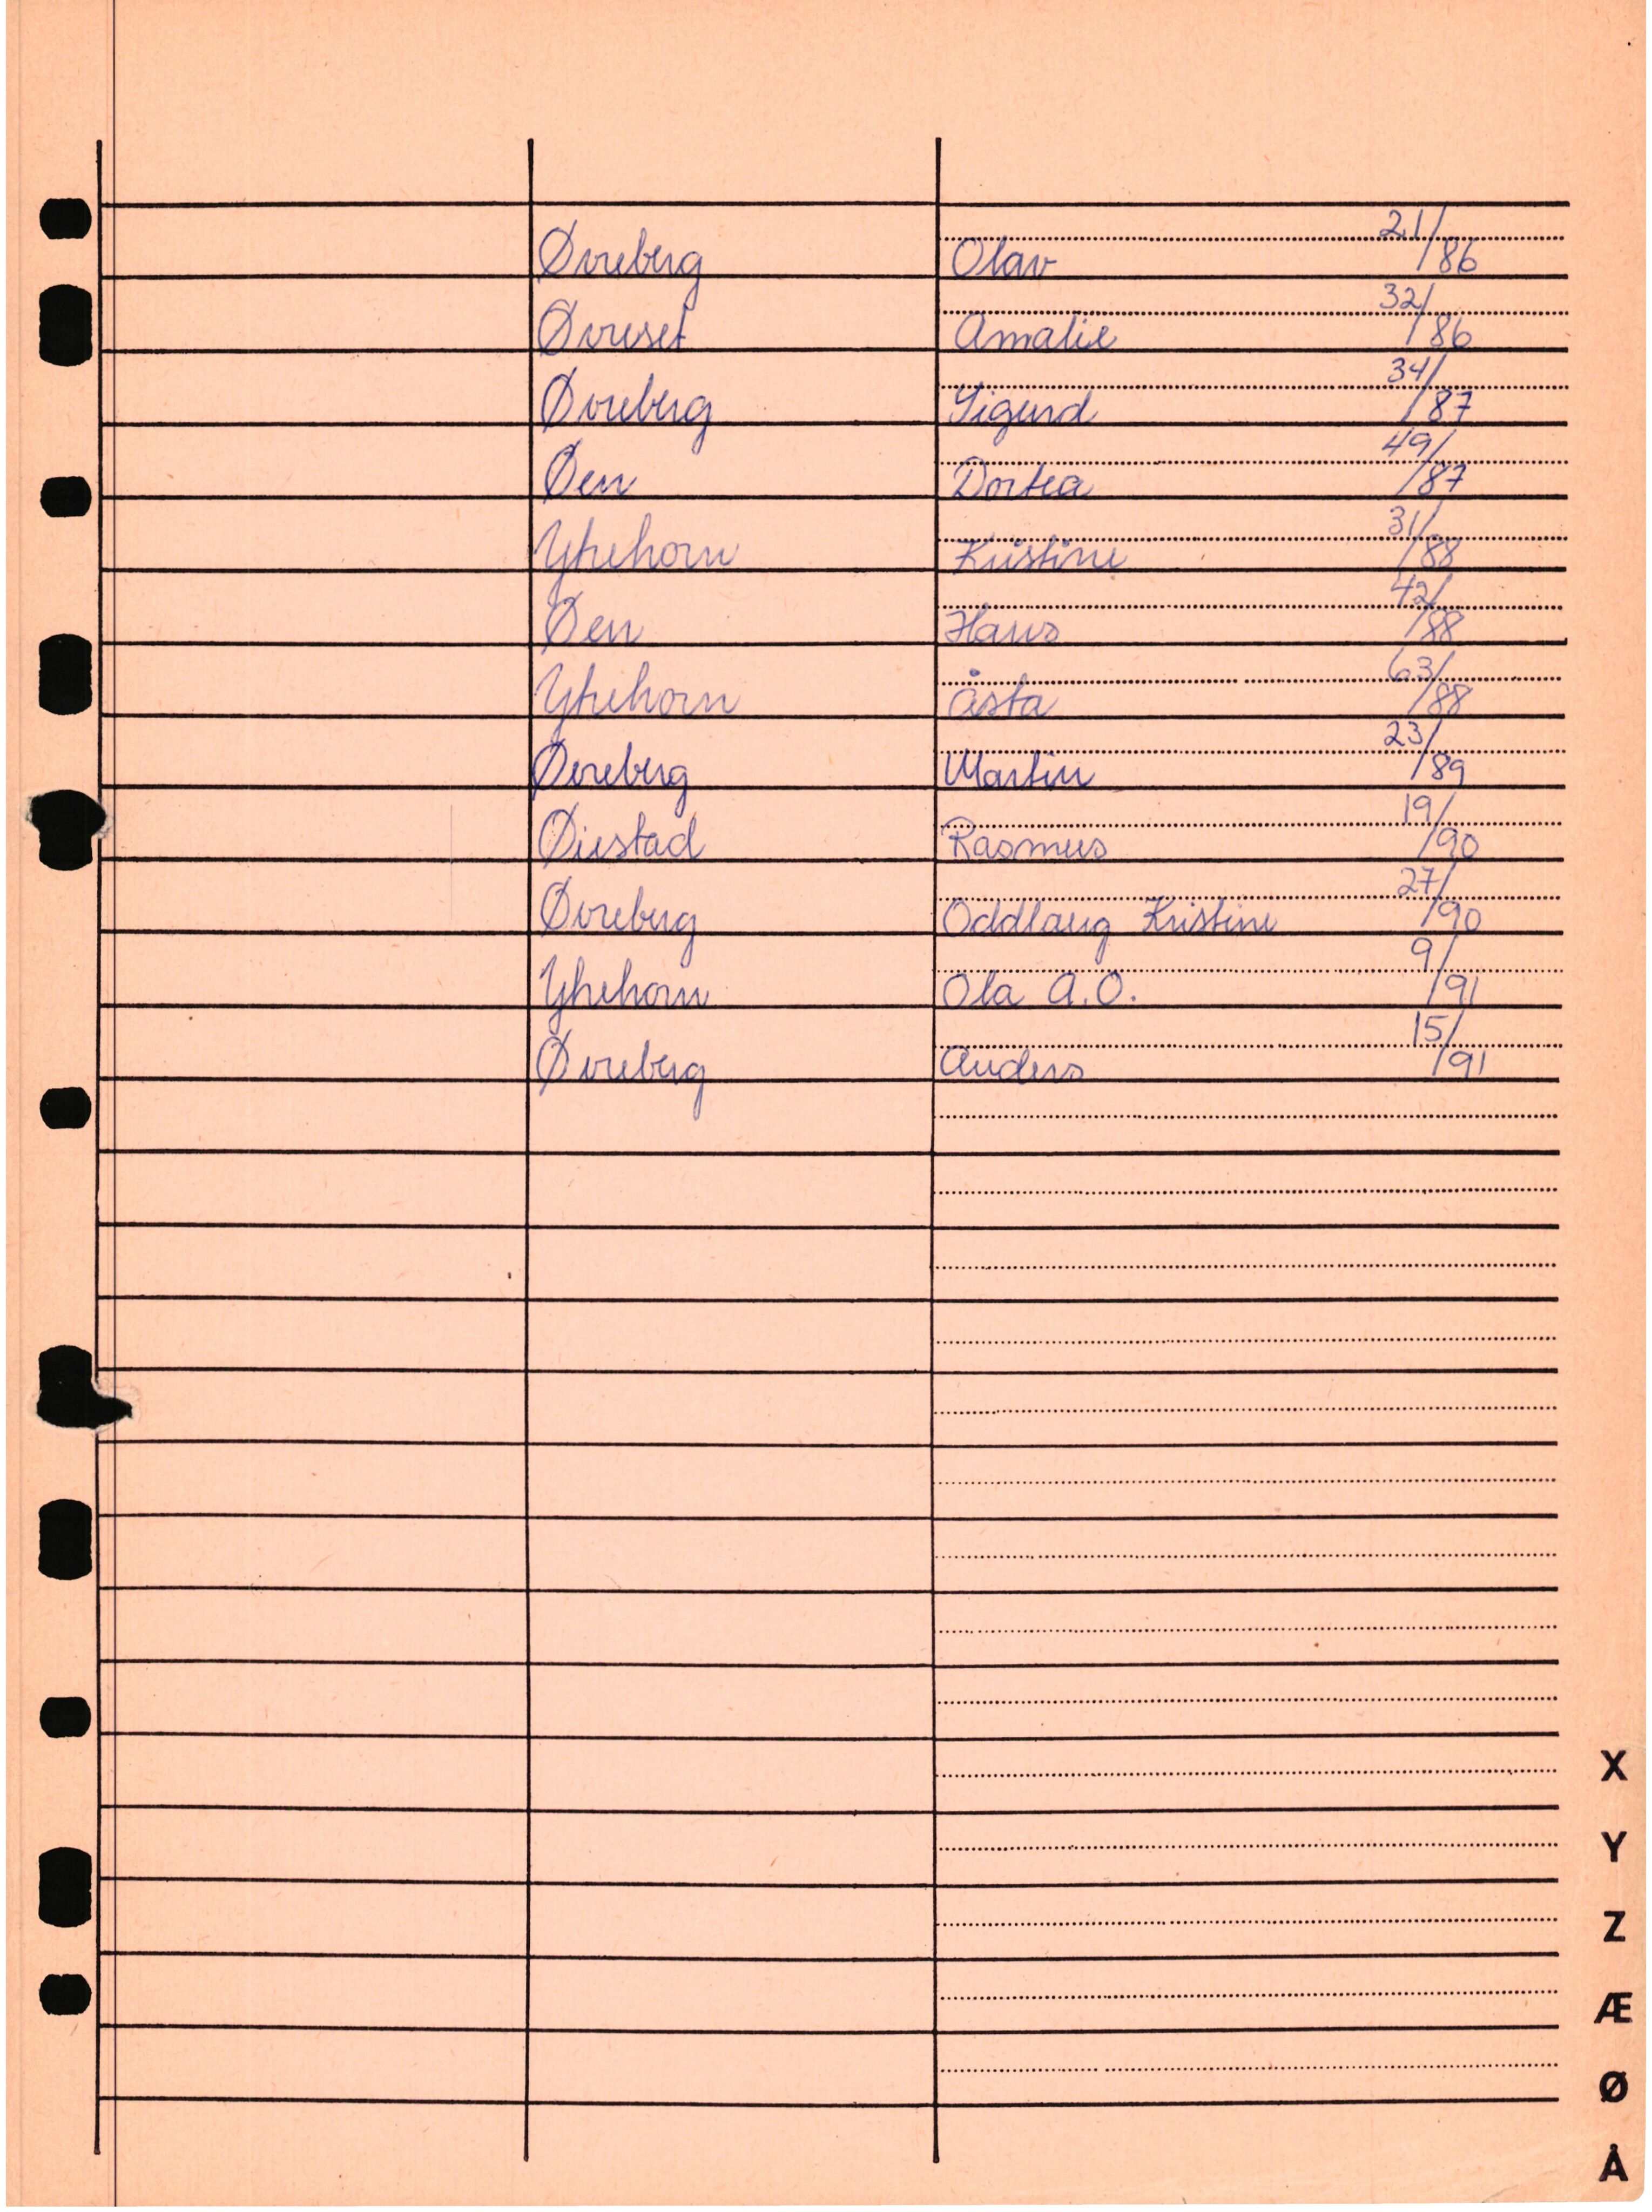 Øvreberg Olav 21/86
Øvreset Amalie 32/86
Øvreberg Sigurd 34/87
Øen Dortea 49/87
Ytrehorn Kristine 31/88
Øen Hans 42/88
Ytrehorn Åsta 63/88
Øvreberg Martin 23/89
Øiestad Rasmus 19/90
Øvreberg Oddlaug Kristine 27/90
Ytrehorn Ola A.O. 9/91
Øvreberg Anders 15/91
X
Y
Z
Æ
Ø
Å